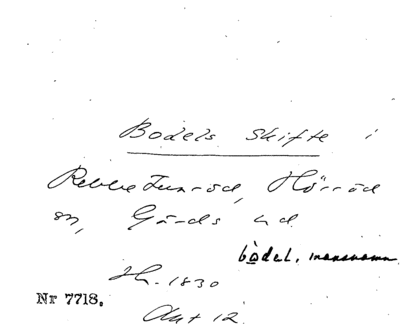 Bodels skifte i
Rebbetuaröd, Hörröd
sn, Gärds hd.
bòdel, mansnamn.
Lh. 1830
Nr 7718.
Akt 12